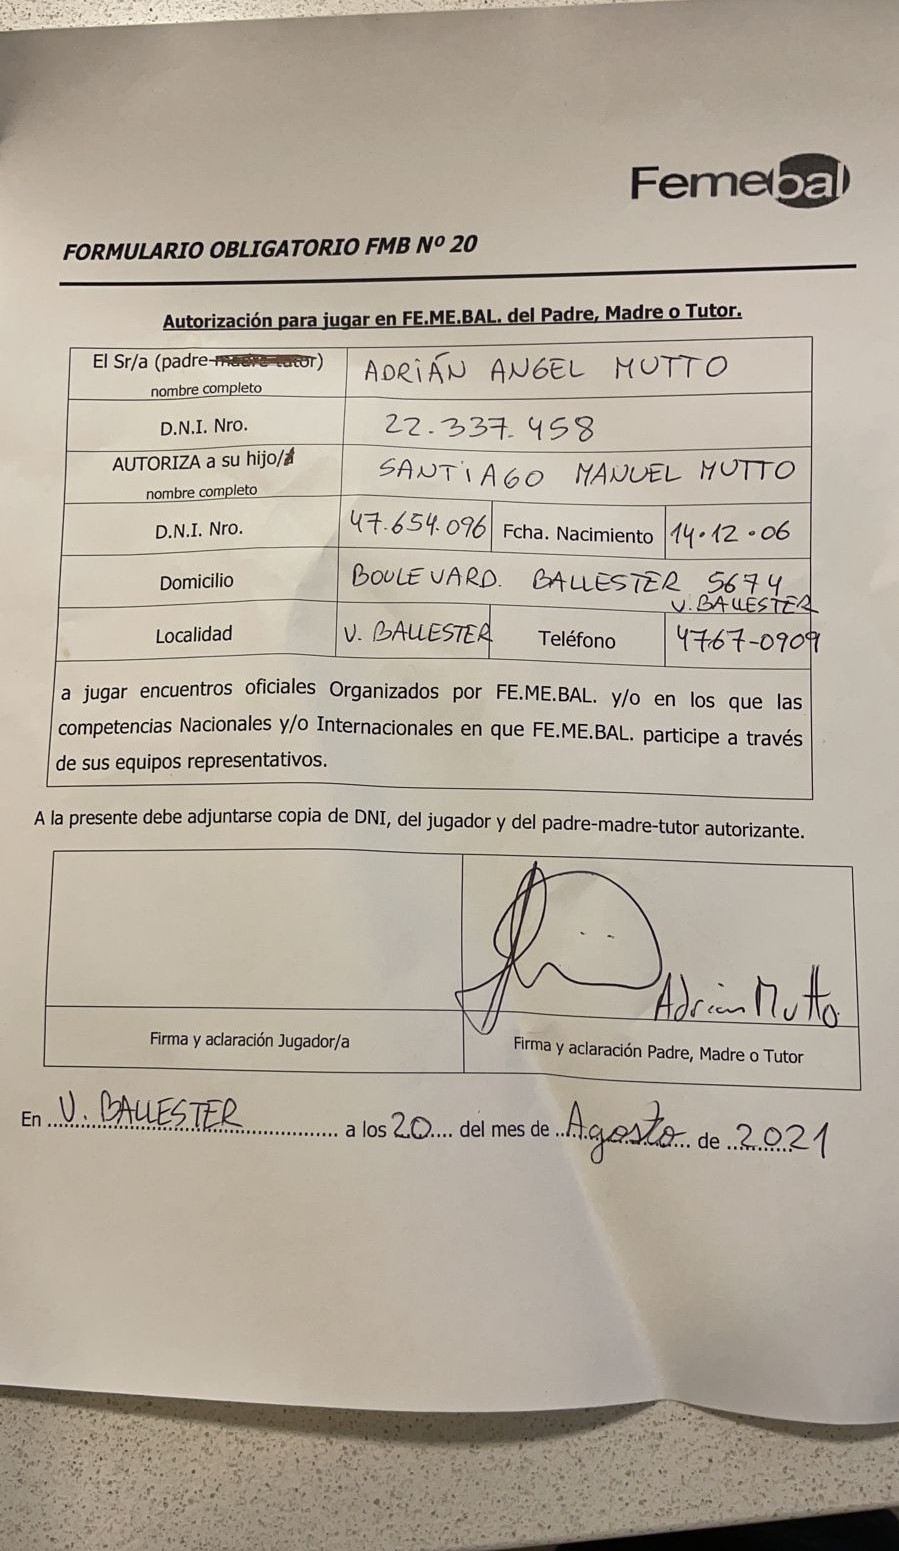 Femebal
FORMULARIO OBLIGATORIO FMB Nº 20
Autorización para jugar en FE.ME.BAL. del Padre, Madre o Tutor.
El Sr/a (padre-madre-tutor) ADRIÁN ANGEL MUTTO
nombre completo
D.N.I. Nro. 22.337.458
AUTORIZA a su hijo/a SANTIAGO MANUEL MUTTO
nombre completo
D.N.I. Nro. 47.654.096 Fcha. Nacimiento 14.12.06
Domicilio BOULEVARD. BALLESTER 5674
V. BALLESTER
Localidad V. BALLESTER Teléfono 4767-0909
a jugar encuentros oficiales Organizados por FE.ME.BAL. y/o en los que las
competencias Nacionales y/o Internacionales en que FE.ME.BAL. participe a través
de sus equipos representativos.
A la presente debe adjuntarse copia de DNI, del jugador y del padre-madre-tutor autorizante.
Adrian Mutto
Firma y aclaración Jugador/a Firma y aclaración Padre, Madre o Tutor
En V. BALLESTER a los 20 del mes de Agosto de 2021